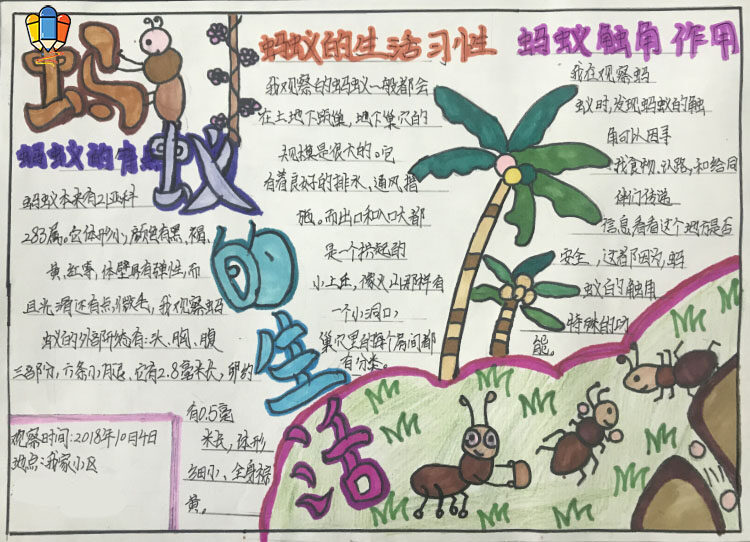 蚂蚁的生活
蚂蚁的有
蚂蚁本来有21亚科
283属。它体形小，颜色有黑、褐、
黄、红等，体壁具有弹性，而
且光滑还有点微毛，我观察蚂
蚁的外部结构有：头、胸、腹
三部分，六条小月足，它有2.8毫米长，卵约
有0.5毫
米长，体形
细小，全身棕
黄。
观察时间：2018年10月4日
地点：我家小区
蚂蚁的生活习性
我观察的蚂蚁一般都会
在土地下面巢，地下巢穴的
规模是很大的。它
有着良好的排水、通风措
施。而出口和入口大都
是一个拱起的
小土丘，像火山那样有
一个小洞口，
巢穴里的每个房间都
有分类。
蚂蚁触角作用
我在观察蚂
蚁时，发现蚂蚁的触
角可以因寻
找食物、认路，和给同
伴们传递
信息看看这个地方是否
安全，这都因为蚂
蚁的触角
特殊的功
能。